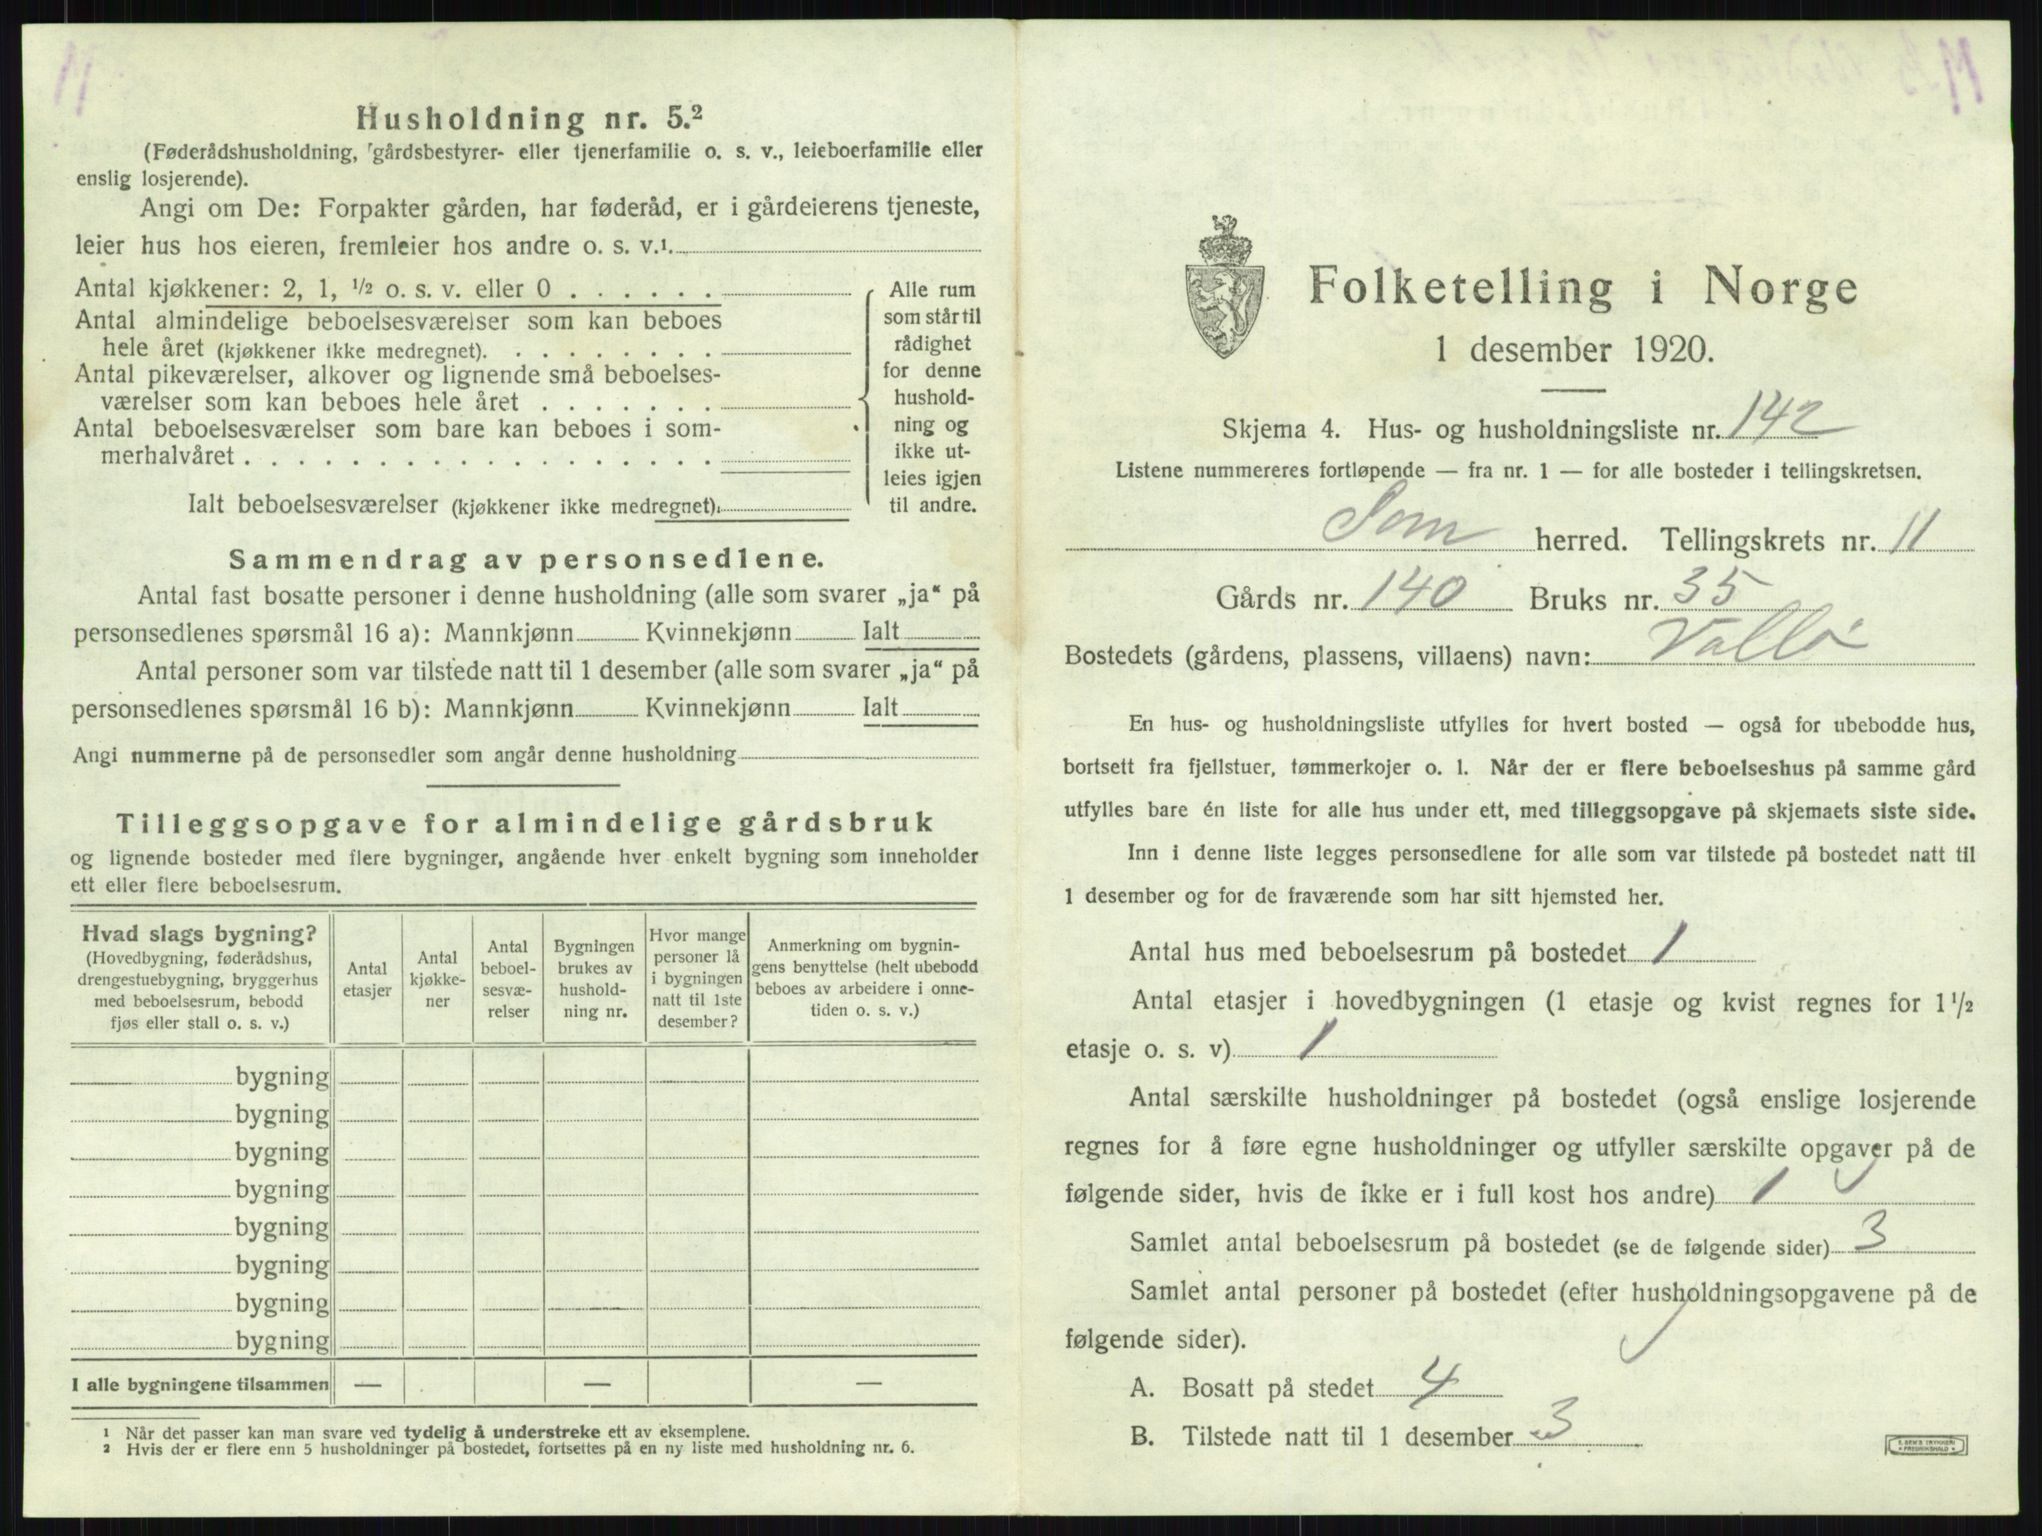 Husholdning nr. 5.²
(Føderådshusholdning, gårdsbestyrer- eller tjenerfamilie o. s. v., leieboerfamilie eller
enslig losjerende).
Angi om De: Forpakter gården, har føderåd, er i gårdeierens tjeneste,
leier hus hos eieren, fremleier hos andre o. s. v.¹
Antal kjøkkener: 2, 1, ½ o. s. v. eller 0 . . . . . .
Antal almindelige beboelsesværelser som kan beboes
hele året (kjøkkener ikke medregnet). . . . . . . . .
Antal pikeværelser, alkover og lignende små beboelses-
værelser som kan beboes hele året . . . . . . .
Antal beboelsesværelser som bare kan beboes i som-
merhalvåret . . . . . . . . . . . . . . . . . .
Ialt beboelsesværelser (kjøkkener ikke medregnet).
Alle rum
som står til
rådighet
for denne
hushold-
ning og
ikke ut-
leies igjen
til andre.
Sammendrag av personsedlene.
Antal fast bosatte personer i denne husholdning (alle som svarer „ja“ på
personsedlenes spørsmål 16 a): Mannkjønn Kvinnekjønn Ialt
Antal personer som var tilstede natt til 1 desember (alle som svarer „ja“ på
personsedlenes spørsmål 16 b): Mannkjønn Kvinnekjønn Ialt
Angi nummerne på de personsedler som angår denne husholdning
Tilleggsopgave for almindelige gårdsbruk
og lignende bosteder med flere bygninger, angående hver enkelt bygning som inneholder
ett eller flere beboelsesrum.
Hvad slags bygning?
(Hovedbygning, føderådshus,
drengestuebygning, bryggerhus
med beboelsesrum, bebodd
fjøs eller stall o. s. v.)
Antal
etasjer
Antal
kjøkke-
ner
Antal
beboel-
sesvæ-
relser
Bygningen
brukes av
hushold-
ning nr.
Hvor mange
personer lå
i bygningen
natt til 1ste
desember?
Anmerkning om bygnin-
gens benyttelse (helt ubebodd
beboes av arbeidere i onne-
tiden o. s. v.)
bygning
bygning
bygning
bygning
bygning
bygning
bygning
bygning
I alle bygningene tilsammen — — —
¹ Når det passer kan man svare ved tydelig å understreke ett av eksemplene.
² Hvis der er flere enn 5 husholdninger på bostedet, fortsettes på en ny liste med husholdning nr. 6.
Folketelling i Norge
1 desember 1920.
Skjema 4. Hus- og husholdningsliste nr. 142
Listene nummereres fortløpende — fra nr. 1 — for alle bosteder i tellingskretsen.
Sem herred. Tellingskrets nr. 11
Gårds nr. 140 Bruks nr. 35
Bostedets (gårdens, plassens, villaens) navn: Vallö
En hus- og husholdningsliste utfylles for hvert bosted — også for ubebodde hus,
bortsett fra fjellstuer, tømmerkojer o. l. Når der er flere beboelseshus på samme gård
utfylles bare én liste for alle hus under ett, med tilleggsopgave på skjemaets siste side.
Inn i denne liste legges personsedlene for alle som var tilstede på bostedet natt til
1 desember og for de fraværende som har sitt hjemsted her.
Antal hus med beboelsesrum på bostedet 1
Antal etasjer i hovedbygningen (1 etasje og kvist regnes for 1½
etasje o. s. v) 1
Antal særskilte husholdninger på bostedet (også enslige losjerende
regnes for å føre egne husholdninger og utfyller særskilte opgaver på de
følgende sider, hvis de ikke er i full kost hos andre) 1
Samlet antal beboelsesrum på bostedet (se de følgende sider) 3
Samlet antal personer på bostedet (efter husholdningsopgavene på de
følgende sider).
A. Bosatt på stedet 4
B. Tilstede natt til 1 desember 3